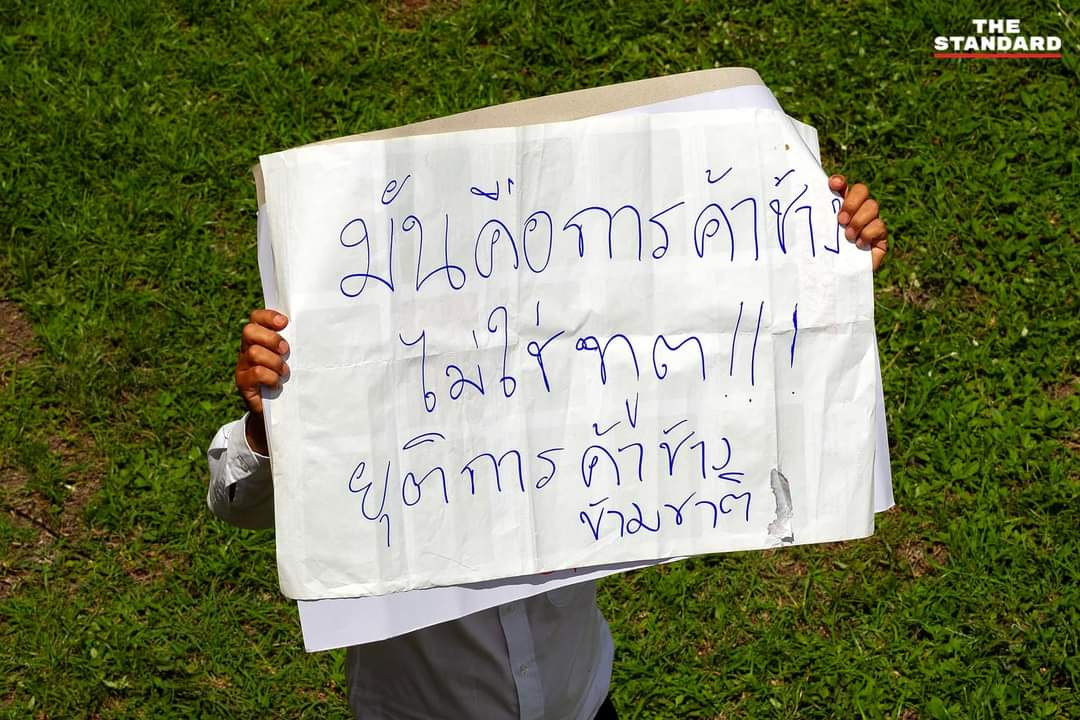 THE
STANDARD
มันคือการค้าช้าง
ไม่ใช่ทูต!!!
ยุติการค้าช้าง
ข้ามชาติ